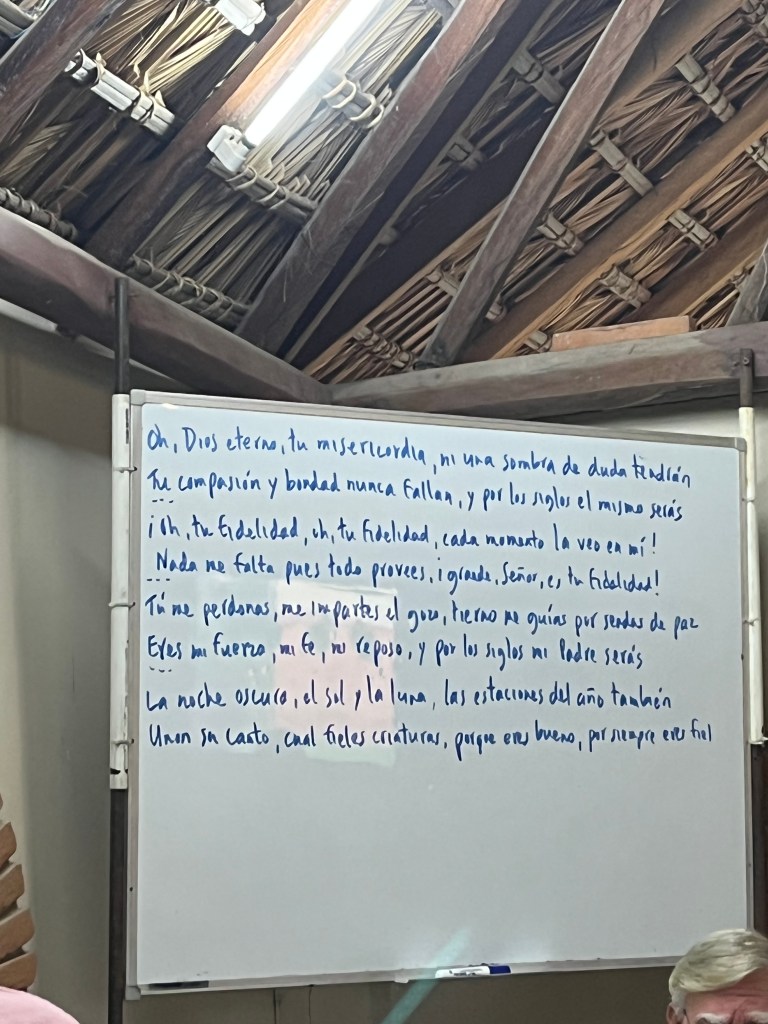 Oh, Dios eterno, tu misericordia, ni una sombra de duda tendrán
Tu compasión y bondad nunca fallan, y por los siglos el mismo serás
---
¡Oh, tu fidelidad, oh, tu fidelidad, cada momento la veo en mí!
Nada me falta pues todo provees, ¡grande, Señor, es tu fidelidad!
---
Tú me perdonas, me impartes el gozo, tierno me guías por sendas de paz
Eres mi fuerza, mi fe, mi reposo, y por los siglos mi Padre serás
---
La noche oscura, el sol y la luna, las estaciones del año también
Unen su canto, cual fieles criaturas, porque eres bueno, por siempre eres fiel